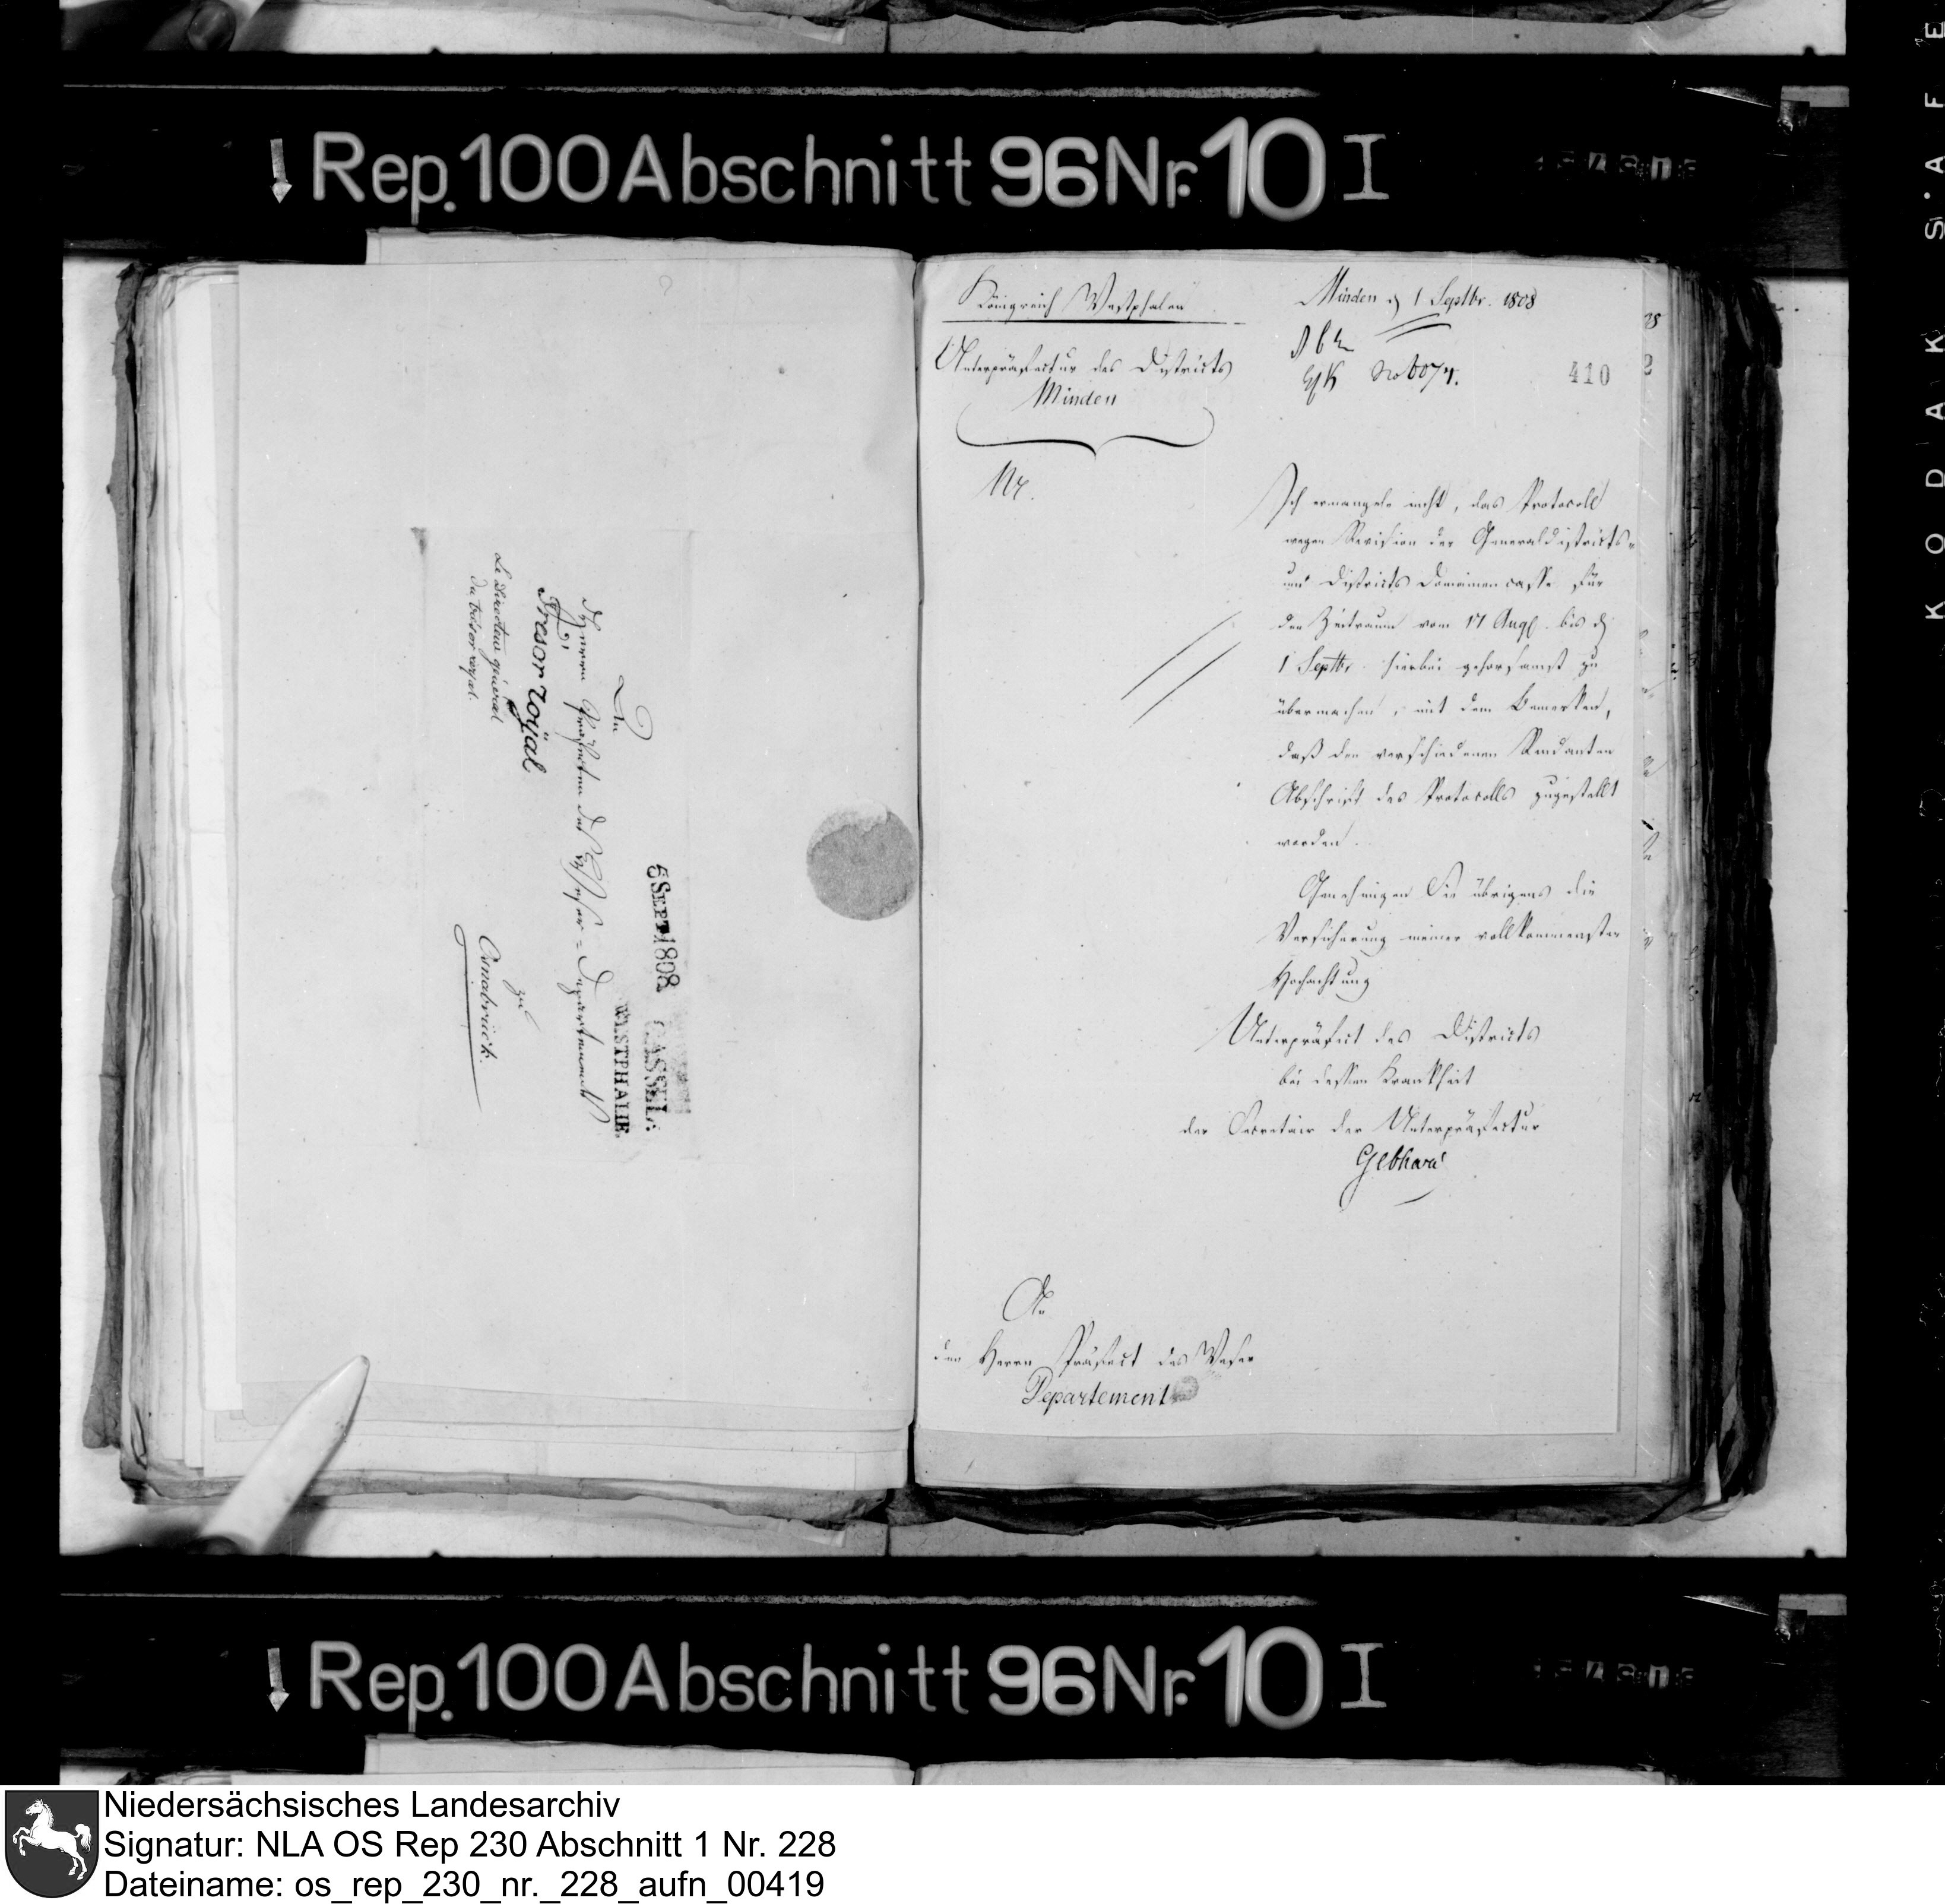 Rep. 100 Abschnitt 96 Nr. 10 I
5 SEPT 1808 CASSEL.
WESTPHALIE.
An
den Herrn Präfecten des Weser-Departements
Tresor Royal
Le directeur général
du trésor royal.
zu
Osnabrück.
Königreich Westphalen
Unterpräfectur des Districts
Minden
Nr.
Minden d 1 Septbr. 1808
410
Ich ermangele nicht, das Protocoll
wegen Revision der Generaldistricts-
und Districts Domainencasse für
den Zeitraum vom 17 Aug. bis d
1 Septbr. hierbei gehorsamst zu
übermachen, mit dem Bemerken,
daß den verschiedenen Rendanten
Abschrift des Protocolls zugestellt
worden.
Genehmigen Sie übrigens die
Versicherung meiner vollkommensten
Hochachtung
Unterpräfect des Districts
bei dessen Krankheit
der Secretair der Unterpräfectur
Gebhard
An
den Herrn Präfect des Weser
Departement
Rep. 100 Abschnitt 96 Nr. 10 I
KODAK SAFE
Niedersächsisches Landesarchiv
Signatur: NLA OS Rep 230 Abschnitt 1 Nr. 228
Dateiname: os_rep_230_nr._228_aufn_00419